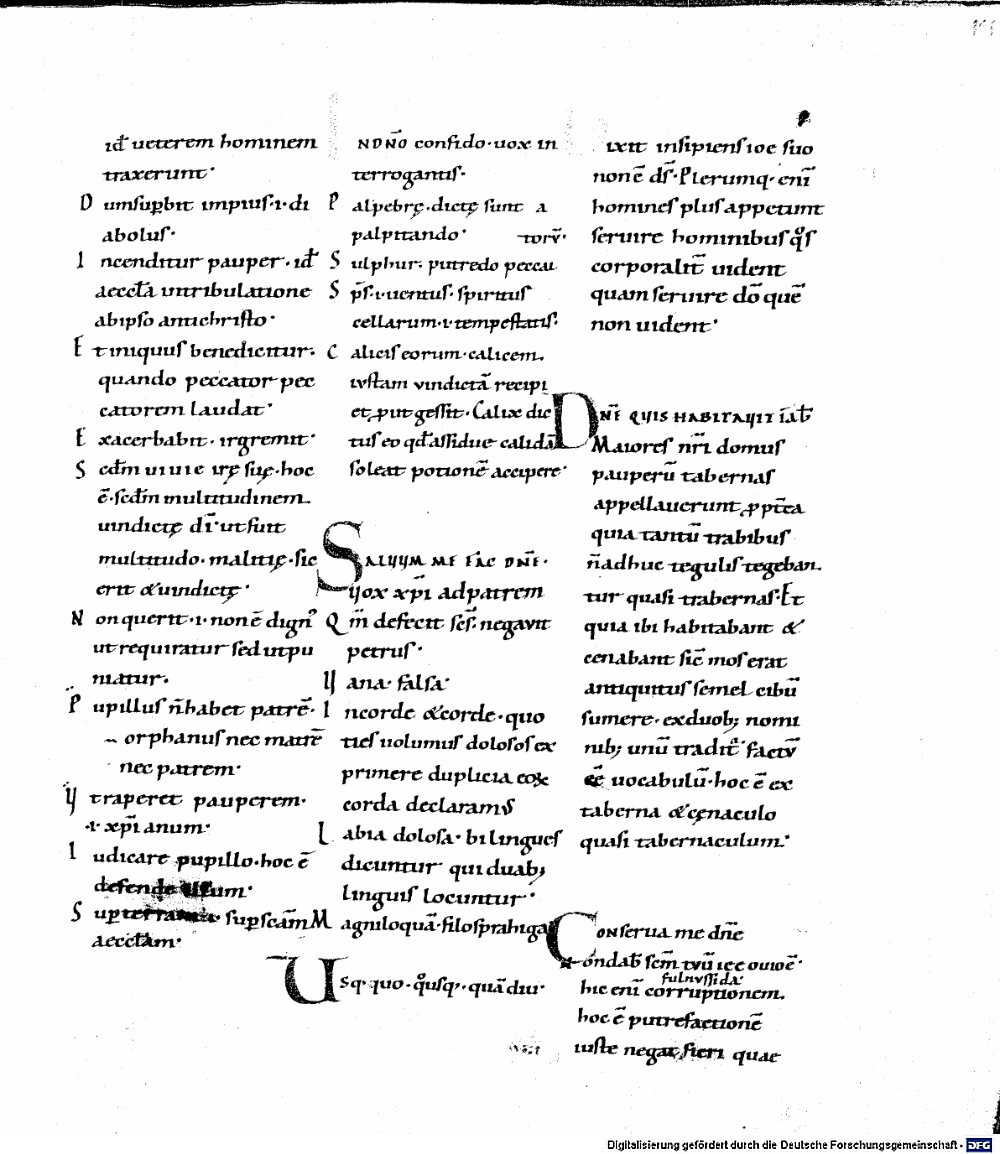 id ueterem hominem
traxerunt·
D umsuꝑbit impius·i·di
abolus·
I ncenditur pauper·id
aeccła intribulatione
abipso antichristo·
E t iniquus benedicitur·
quando peccator pec
catorem laudat·
E xacerbabit·irgremit·
S ecdm uiuie irę suę·hoc
ē·secdm multitudinem
uindictę dī·ut sunt
multitudo·malitię·sic
erit &uindictę·
N onquerit·i·nonē dign᾽
ut requiratur sed utpu
niatur·
P upillus n̄habet patrē·
orphanus nec matrē
nec patrem·
U traperet pauperem·
·i·xp̄ianum·
I udicare pupillo·hoc ē
defende illum·
S uꝑterram· suꝑscām
aecctam·
INDNŌ confido·uox in
terrogantis·
P alpebrę·dictę sunt a
palpitando· torū·
S ulphur· putredo peccai
S p̄s·i·uentus·spiritus
cellarum·i·tempestatis·
C alicis eorum·calicem
iustam vindictā recipi
et,put gessit·Calix dic
tus eo qd assidue calidā
soleat potionē accipere·
SALUUM ME FAC DNĒ·
Uox xp̄i adpatrem
Q m̄ defecit scs̄·negavit
petrus·
U ana·falsa·
I ncorde &corde·quo
ties uolumus dolosos ex
primere duplicia eos
corda declaramus
L abia dolosa·bilingues
dicuntur qui duab;
linguis locuntur·
M agniloquā·filosprahiga
Usq· quo·qusq·quādiu·
ixit insipiens ioc suo
nonē ds̄·Plerumq·enī
homines plus appetunt
seruire hominibus qs
corporalit̄ uident
quam seruire dō quē
non uident·
DNĒ QUIS HABITAUIT ĪAB
Maiores nrī domus
pauperū tabernas
appellauerunt,pptea
quia tantū trabibus
n̄adhuc tegulis tegeban
tur quasi trabernas·Et
quia ibi habitabant &
cenabant sic mos erat
antiquitus semel cibū
sumere·exduob; nomi
nib; unū tradit̄ factū
eē uocabulū·hoc ē ex
taberna &cęnaculo
quasi tabernaculum·
Conserua me dnē
ondab scm tuū
fulnussida·
hic enī corruptionem
hoc ē putrefactionē
iuste negat fieri quae
Digitalisierung gefördert durch die Deutsche Forschungsgemeinschaft - DFG